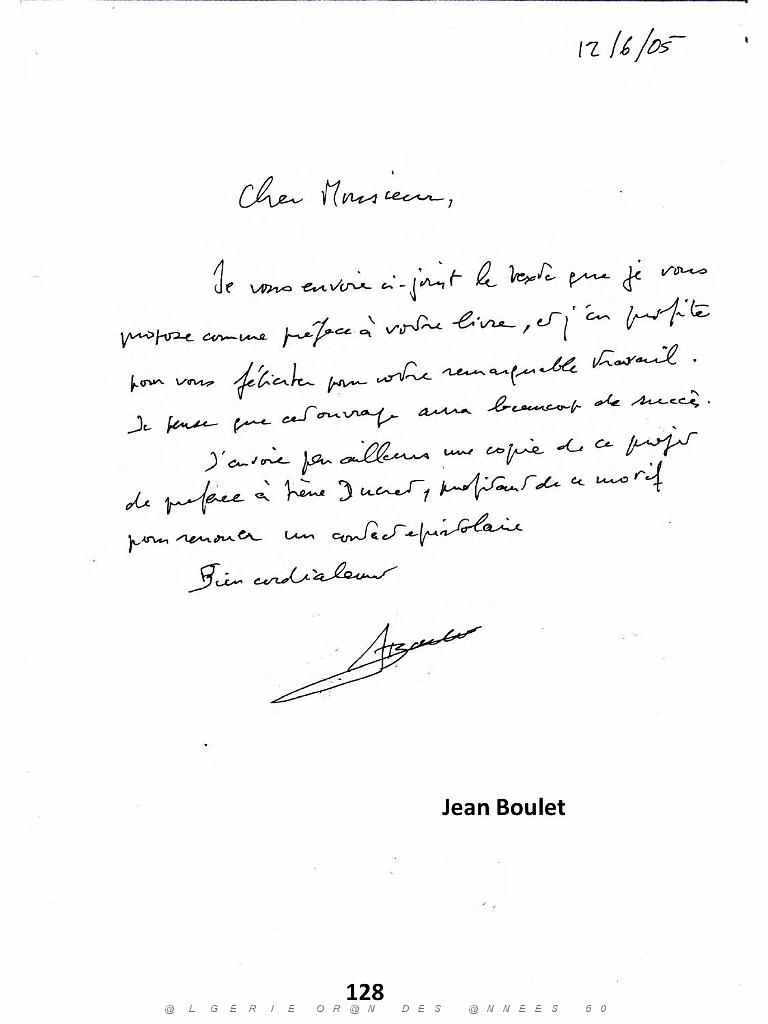 12/6/05
Cher Monsieur,
Je vous envoie ci-joint le texte que je vous
propose comme préface à votre livre, et j'en profite
pour vous féliciter pour votre remarquable travail.
Je pense que cet ouvrage aura beaucoup de succès.
J'envoie par ailleurs une copie de ce projet
de preface à Irène Ducret, profitant de ce motif
pour renouer un contact epistolaire
Bien cordialement
Jean Boulet
128
@LGERIE OR@N DES @NNEES 50